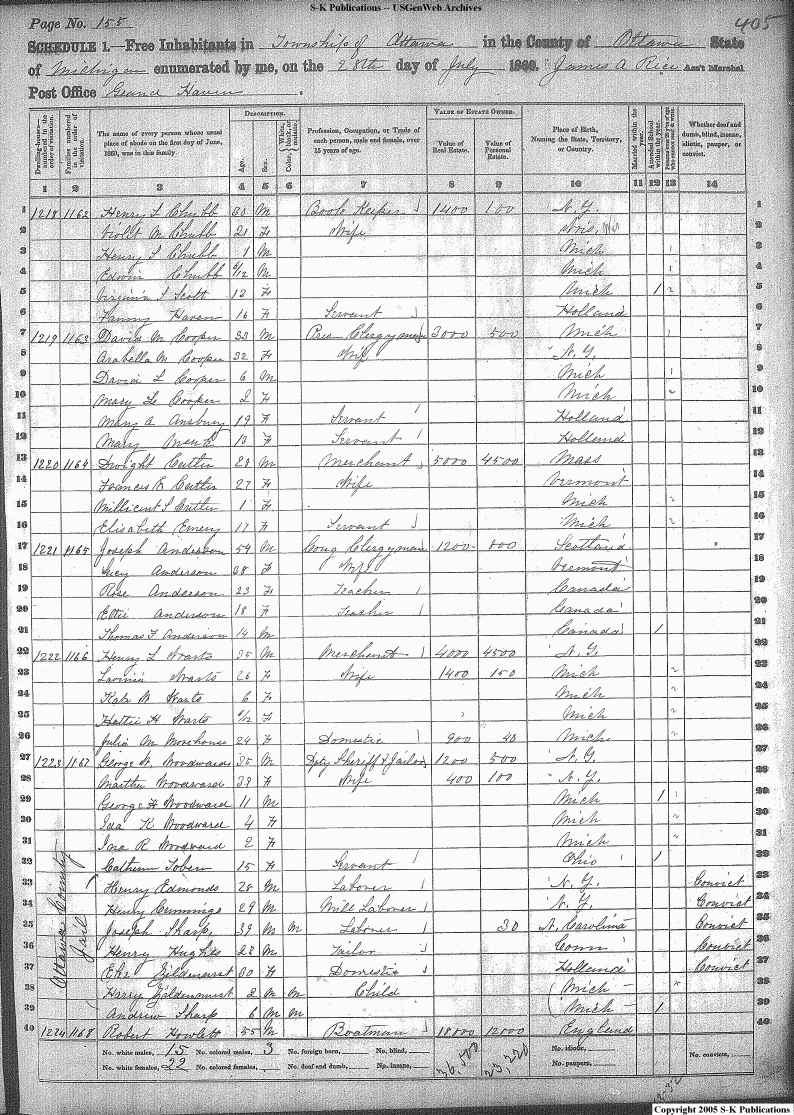 S-K Publications -- USGenWeb Archives
Page No. 155
405
SCHEDULE 1.—Free Inhabitants in Township of Ottawa in the County of Ottawa State
of Michigan enumerated by me, on the 28th day of July 1860. James A Rice Ass't Marshal
Post Office Grand Haven .
Dwelling-houses—numbered in the order of visitation. Families numbered in the order of visitation. The name of every person whose usual place of abode on the first day of June, 1860, was in this family. DESCRIPTION. Age. Sex. Color, White, black, or mulatto. Profession, Occupation, or Trade of each person, male and female, over 15 years of age. VALUE OF ESTATE OWNED. Value of Real Estate. Value of Personal Estate. Place of Birth, Naming the State, Territory, or Country. Married within the year. Attended School within the year. Whether deaf and dumb, blind, insane, idiotic, pauper, or convict.
1 2 3 4 5 6 7 8 9 10 11 12 13 14
1 1218 1162 Henry L Chubb 30 M Book Keeper 1400 100 N. Y. 1
2 Violet M Chubb 21 F Wife 2
3 Henry S Chubb 1 M Mich 3
4 Edwin Chubb M Mich 4
5 Virginia S Scott 13 F Mich 1 5
6 Fanny Haven 16 F Servant Holland 6
7 1219 1163 David M Cooper 33 M Pres Clergyman 3000 500 Mich 7
8 Arabella M Cooper 32 F Wife N. Y. 8
9 David L Cooper 6 M Mich 9
10 Mary L Cooper 2 F Mich 10
11 Mary A Ansbury 19 F Servant Holland 11
12 Mary 13 F Servant Holland 12
13 1220 1164 Dwight Cutler 28 M Merchant 5000 4500 Mass 13
14 Frances E Cutler 27 F Wife Vermont 14
15 Millicent S Cutler 1 F Mich 15
16 Elisabeth Emery 17 F Servant Mich 16
17 1221 1165 Joseph Anderson 54 M Cong Clergyman 1200 800 Scotland 17
18 Lucy Anderson 38 F Wife Vermont 18
19 Rose Anderson 23 F Teacher Canada 19
20 Ettie Anderson 18 F Teacher Canada 20
21 Thomas F Anderson 14 M Canada 1 21
22 1222 1166 Henry L 35 M Merchant 4000 4500 N. Y. 22
23 Lavinia 26 F Wife 1400 150 Mich 23
24 Kate W 6 F Mich 24
25 Hattie H F Mich 25
26 Julia M Morehouse 24 F Domestic 900 Mich 26
27 1223 1167 George W. Woodward 35 M Depty Sheriff & Jailor 1200 500 N. Y. 27
28 Martha Woodward 38 F Wife 400 100 N. Y. 28
29 George H Woodward 11 M Mich 1 29
30 Ida K Woodward 4 F Mich 30
31 Ina R Woodward 2 F Mich 31
32 Catherine 15 F Servant Ohio 1 32
33 Henry Edmonds 28 M Laborer N. Y. Convict 33
34 Henry Cummings 29 M Mill Laborer N. Y. Convict 34
35 Joseph Sharp. 39 M M Laborer 30 N. Carolina Convict 35
36 Henry Hughes 22 M Tailor Conn Convict 36
37 30 F Domestic Holland Convict 37
38 Harry 2 M M Child Mich 38
39 Andrew Sharp 6 M M Mich 1 39
Ottawa County Jail
40 1224 1168 Robert Howlett 55 M Boatman 18000 12000 England 40
No. white males, 15 No. colored males, 3 No. foreign born, No. blind, 36,500 23,220 No. idiotic, No. convicts,
No. white females, 22 No. colored females, No. deaf and dumb, No. insane, No. paupers,
Copyright 2005 S-K Publications